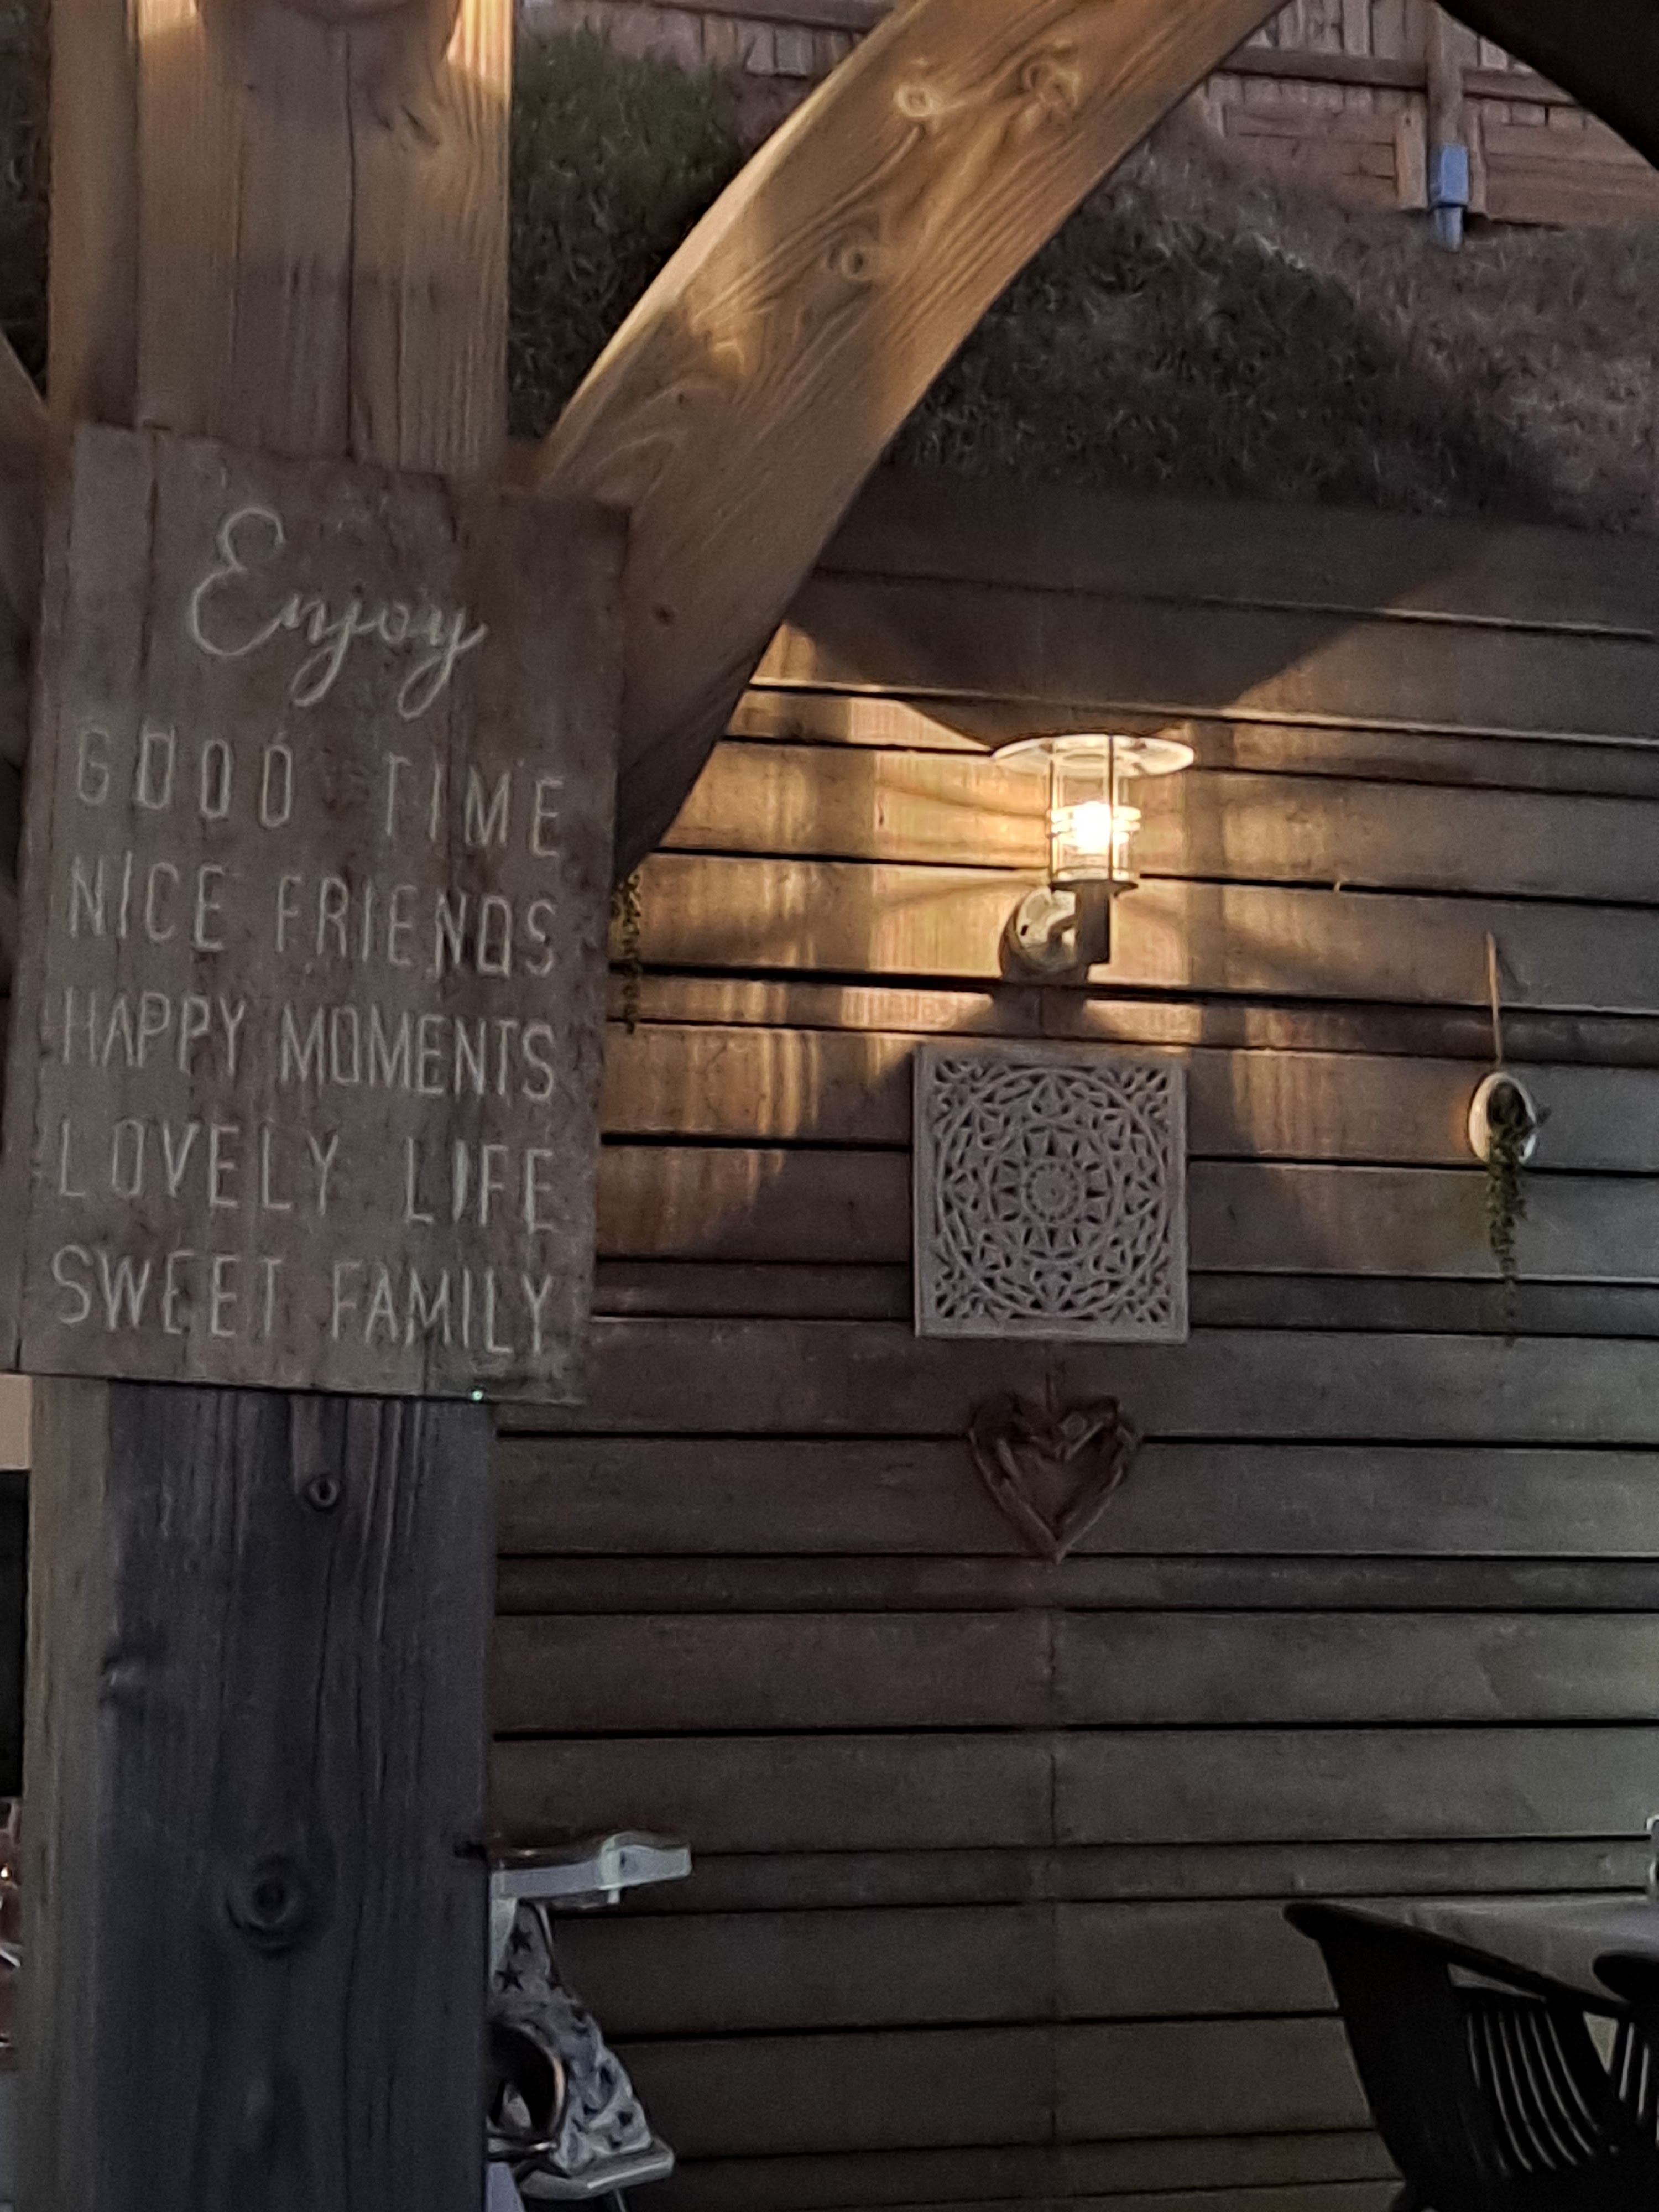 Enjoy
GOOD TIME
NICE FRIENDS
HAPPY MOMENTS
LOVELY LIFE
SWEET FAMILY